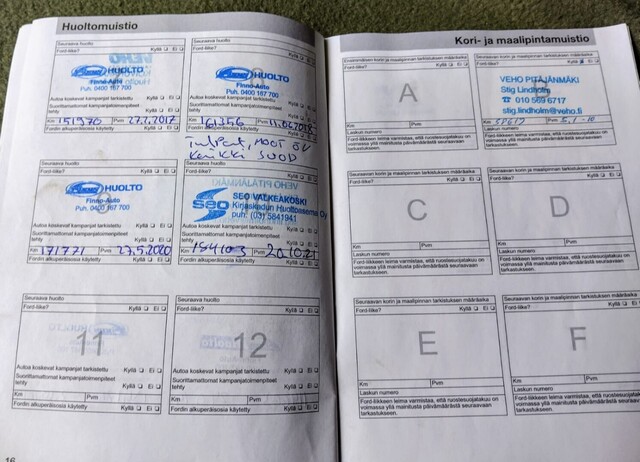 Huoltomuistio
Seuraava huolto
Ford-liike? Kyllä Ei
HUOLTO
Finno-Auto
Puh. 0400 167 700
Autoa koskevat kampanjat tarkistettu
Kyllä Ei
Suorittamattomat kampanjatoimenpiteet
tehty Kyllä Ei
Km 151970 Pvm 27.7.2017
Fordin alkuperäisosia käytetty Kyllä Ei
Seuraava huolto
Ford-liike? Kyllä Ei
HUOLTO
Finno-Auto
Puh. 0400 167 700
Kyllä Ei
Suorittamattomat kampanjatoimenpiteet
tehty Kyllä Ei
Km 161356 Pvm
Fordin alkuperäisosia käytetty Kyllä Ei
Seuraava huolto
Ford-liike? Kyllä Ei
HUOLTO
Finno-Auto
Puh. 0400 167 700
Suorittamattomat kampanjatoimenpiteet
tehty Kyllä Ei
Km 171771 Pvm 27.5.2020
Fordin alkuperäisosia käytetty Kyllä Ei
VEHO PITÄJÄNMÄKI
SEO
SEO VALKEAKOSKI
Kirjaskadun Huoltoasema Oy
puh. (03) 5841941
Km 184103 Pvm
Fordin alkuperäisosia käytetty Kyllä Ei
Seuraava huolto
Ford-liike? Kyllä Ei
11
Autoa koskevat kampanjat tarkistettu
Kyllä Ei
Suorittamattomat kampanjatoimenpiteet
tehty Kyllä Ei
Km Pvm
Fordin alkuperäisosia käytetty Kyllä Ei
Seuraava huolto
Ford-liike? Kyllä Ei
12
Autoa koskevat kampanjat tarkistettu
Kyllä Ei
Suorittamattomat kampanjatoimenpiteet
tehty Kyllä Ei
Km Pvm
Fordin alkuperäisosia käytetty Kyllä Ei
16
Kori- ja maalipintamuistio
Ensimmäisen korin ja maalipinnan tarkistuksen määräaika
Ford-liike? Kyllä Ei
A
Km Pvm
Laskun numero
Ford-liikkeen leima varmistaa, että ruostesuojatakuu on
voimassa yllä mainitusta päivämäärästä seuraavaan
tarkastukseen.
Seuraavan korin ja maalipinnan tarkistuksen määräaika
Ford-liike? Kyllä Ei
VEHO PITÄJÄNMÄKI
Stig Lindholm
☎ 010 569 6717
stig.lindholm@veho.fi
Km Pvm
Laskun numero
Ford-liikkeen leima varmistaa, että ruostesuojatakuu on
voimassa yllä mainitusta päivämäärästä seuraavaan
tarkastukseen.
Seuraavan korin ja maalipinnan tarkistuksen määräaika
Ford-liike? Kyllä Ei
C
Km Pvm
Laskun numero
Ford-liikkeen leima varmistaa, että ruostesuojatakuu on
voimassa yllä mainitusta päivämäärästä seuraavaan
tarkastukseen.
Seuraavan korin ja maalipinnan tarkistuksen määräaika
Ford-liike? Kyllä Ei
D
Km Pvm
Laskun numero
Ford-liikkeen leima varmistaa, että ruostesuojatakuu on
voimassa yllä mainitusta päivämäärästä seuraavaan
tarkastukseen.
Seuraavan korin ja maalipinnan tarkistuksen määräaika
Ford-liike? Kyllä Ei
E
Km Pvm
Laskun numero
Ford-liikkeen leima varmistaa, että ruostesuojatakuu on
voimassa yllä mainitusta päivämäärästä seuraavaan
tarkastukseen.
Seuraavan korin ja maalipinnan tarkistuksen määräaika
Ford-liike? Kyllä Ei
F
Km Pvm
Laskun numero
Ford-liikkeen leima varmistaa, että ruostesuojatakuu on
voimassa yllä mainitusta päivämäärästä seuraavaan
tarkastukseen.